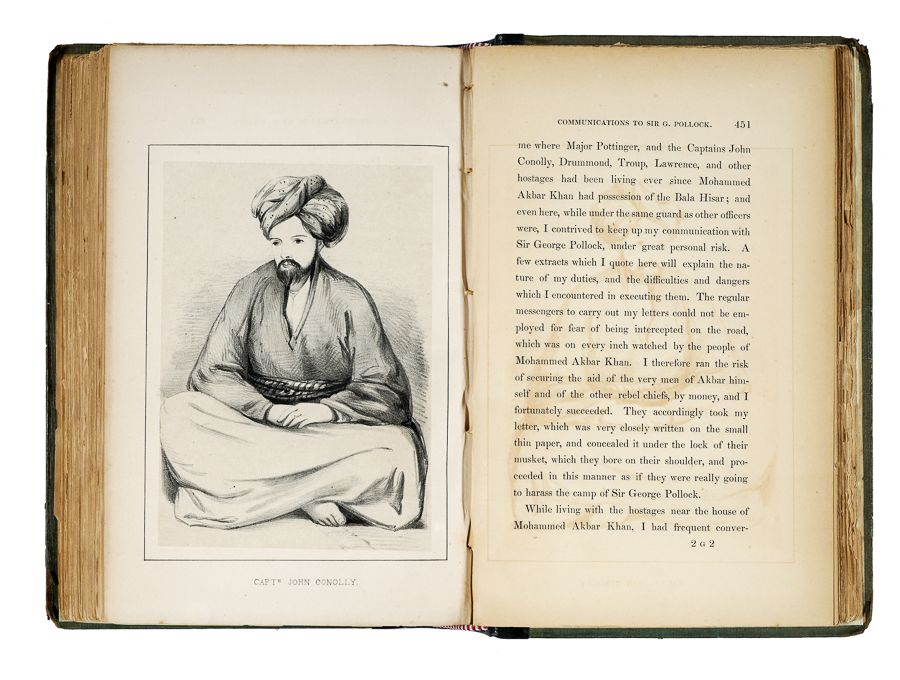 CAPTN JOHN CONOLLY.
COMMUNICATIONS TO SIR G. POLLOCK. 451
me where Major Pottinger, and the Captains John
Conolly, Drummond, Troup, Lawrence, and other
hostages had been living ever since Mohammed
Akbar Khan had possession of the Bala Hisar; and
even here, while under the same guard as other officers
were, I contrived to keep up my communication with
Sir George Pollock, under great personal risk. A
few extracts which I quote here will explain the na-
ture of my duties, and the difficulties and dangers
which I encountered in executing them. The regular
messengers to carry out my letters could not be em-
ployed for fear of being intercepted on the road,
which was on every inch watched by the people of
Mohammed Akbar Khan. I therefore ran the risk
of securing the aid of the very men of Akbar him-
self and of the other rebel chiefs, by money, and I
fortunately succeeded. They accordingly took my
letter, which was very closely written on the small
thin paper, and concealed it under the lock of their
musket, which they bore on their shoulder, and pro-
ceeded in this manner as if they were really going
to harass the camp of Sir George Pollock.
While living with the hostages near the house of
Mohammed Akbar Khan, I had frequent conver-
2 G 2